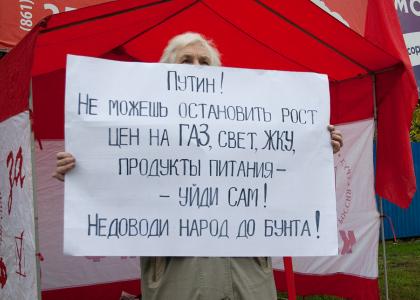 (861)
МОЖ
ПУТИН!
НЕ МОЖЕШЬ ОСТАНОВИТЬ РОСТ
ЦЕН НА ГАЗ, СВЕТ, ЖКУ,
ПРОДУКТЫ ПИТАНИЯ-
- УЙДИ САМ!
НЕДОВОДИ НАРОД ДО БУНТА!
за